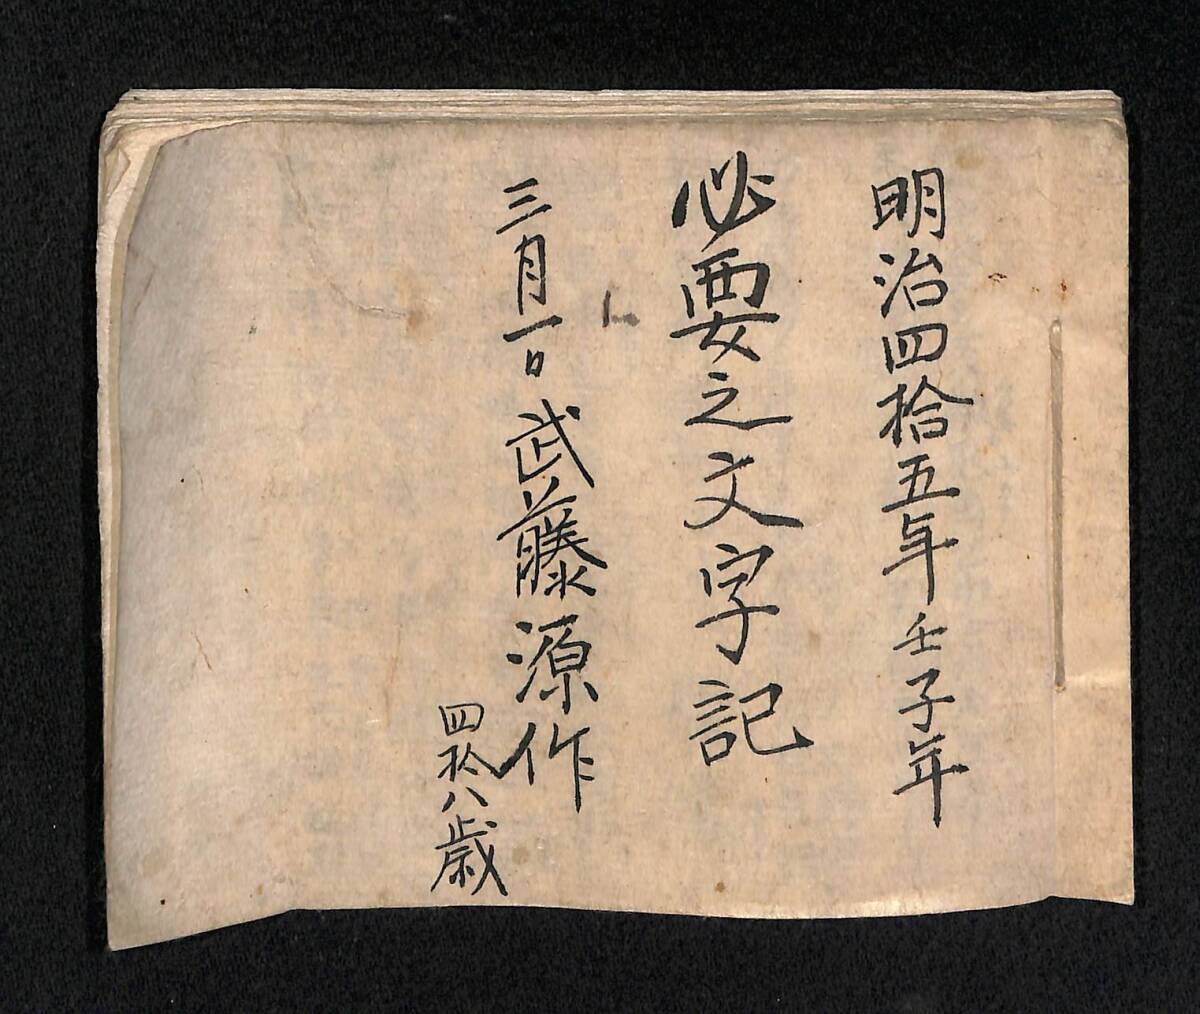 明治四拾五年壬子年
必要之文字記
三月一日武藤源作
四拾八歳